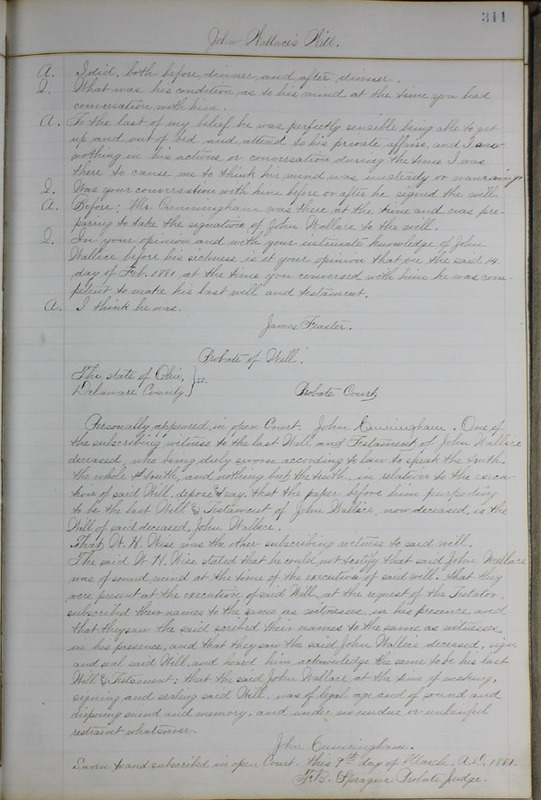 311
John Wallace's Will.
A. I did, both before dinner and after dinner.
Q. What was his condition as to his mind at the time you had
conversation with him.
A. To the best of my belief he was perfectly sensible being able to get
up and out of bed and attend to his private affairs, and I saw
nothing in his actions or conversation during the times I was
there to cause me to think his mind was unsteady or wandering.
Q. Was your conversation with him before or after he signed the will.
A. Before; Mr. Cunningham was there at the time and was pre-
paring to take the signature of John Wallace to the will.
Q. In your opinion and with your intimate knowledge of John
Wallice before his sickness is it your opinion that on the said 14.
day of Feb. 1881, at the time you conversed with him he was com-
petent to make his last will and testament.
A. I think he was.
James Feaster.
Probate of Will.
The State of Ohio, } ss.
Delaware County.
Probate Court
Personally appeared in open Court, John Cunningham. One of
the subscribing witness to the last Will and Testament of John Wallice
deceased, who being duly sworn according to law to speak the truth,
the whole truth, and nothing but the truth, in relation to the execu-
tion of said Will, depose & say: that the paper before him purporting
to be the last Will & Testament of John Wallace, now deceased, is the
Will of said deceased, John Wallace.
That W. H. Wise was the other subscribing witness to said will.
The said W. H. Wise stated that he could not testify that said John Wallace
was of sound mind at the time of the execution of said will; that they
were present at the execution of said Will, at the request of the Testator,
subscribed their names to the same as witnesses, in his presence and
that they saw the said scribed their names to the same as witnesses
in his presence, and that they saw the said John Wallice deceased, sign
and seal said Will, and heard him acknowledge the same to be his last
Will & Testament; that the said John Wallace, at the time of making,
signing and sealing said Will, was of legal age and of sound and
disposing mind and memory, and under no undue or unlawful
restraint whatsoever.
John Cunningham.
Sworn to and subscribed in open Court, this 9th day of March, A.D. 1881.
F. B. Sprague Probate Judge.